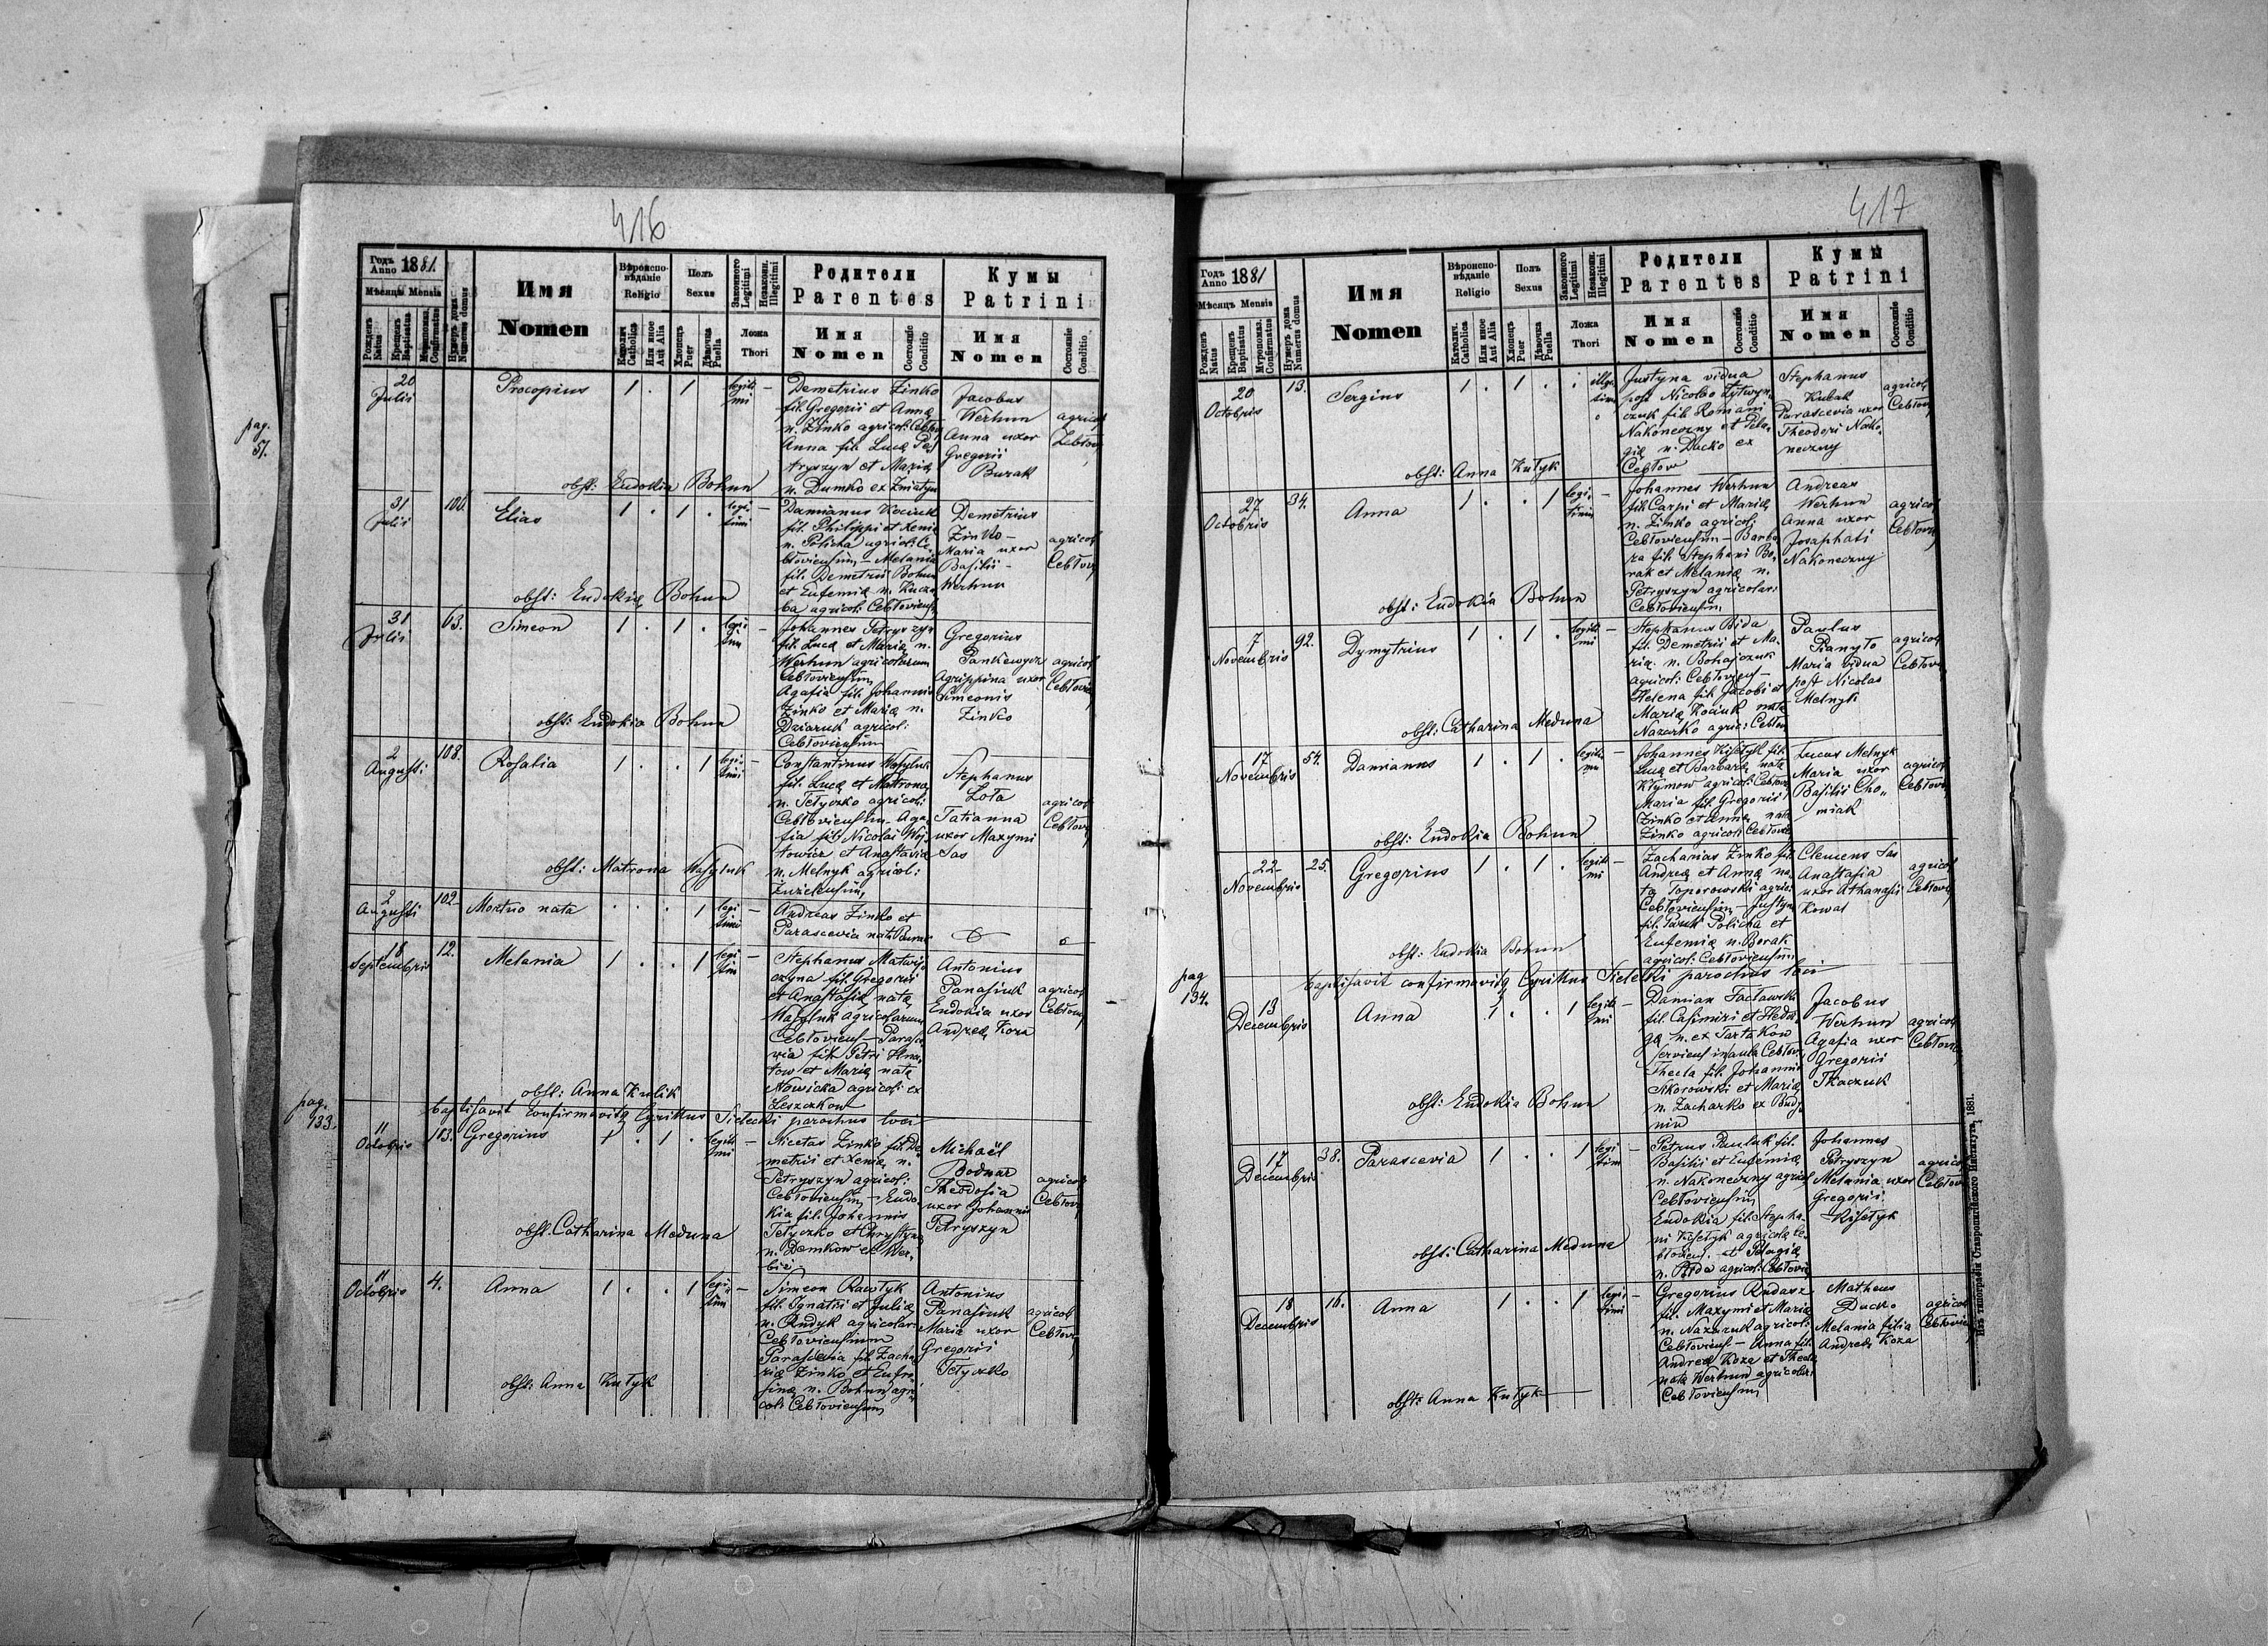 416
Годъ Anno 1881.
Мѣсяцъ Mensis
Рожденъ Natus
Крещенъ Baptisatus
Мѵропомаз. Confirmatus
Нумеръ дома Numerus domus
Имя
Nomen
Вѣроиспо-
вѣданіе
Religio
Католич. Catholica
Или иное Aut Alia
Полъ
Sexus
Хлопецъ Puer
Дѣвочка Puella
Законного Legitimi
Незаконн. Illegitimi
Ложа
Thori
Родители
Parentes
Имя
Nomen
Состояніе Conditio
Кумы
Patrini
Имя
Nomen
Состояніе Conditio
pag.
51.
20
Julii
Procopius
1 . 1
legiti
mi
Demetrius Zinko
fil. Gregorii et Anna
n. Zinko agricol:
Anna fil. Lucą Pe
tryszyn et Marią
n. Dumko ex Zniatyn
Jacobus
Werhun
Anna uxor
Gregorii
Burak
agricol
obst: Eudokia Bohun
31
Julii
100.
Elias
1 . 1 .
legi
timi
Damianus Kociuk
fil. Philippi et Xenią
n. Policha agricol: Ce
btoviensium – Melania
fil. Demetrii Bohun
et Eufemią n. Kucza
ba agricol: Cebłoviens
Demetrius
Zinko –
Maria uxor
Basilii –
Werhun
agricol
Cebłov
obst: Eudokia Bohun
31
Julii
63.
Simeon
1 . 1 .
Johannes Petryszyn
fil. Lucą et Marią n.
Werhun agricolarum
Cebłoviensium
Agafia fil. Johannis
Zinko et Marią n.
Dziaruk agricol:
Cebłoviensium
Gregorius
Pankewycz
Agrippina uxor
Simeonis
Zinko
agricol
Cebłovi
obst: Eudokia Bohun
2
Augusti
108.
Rosalia
1 . . 1
legi
timi
Constantinus Wasyluk
fil. Lucą et Matrona
n. Tetyczko agricol:
Cebłoviensium – Aga
fia fil. Nicolai Woj
towicz et Anastasią
n. Melnyk agricol:
Stephanus
Lota
Tatianna
uxor Maxymi
Sas
agricol
Cebłov
obst: Matrona Wasyluk
2
Augusti
102
Mortuo nata
. . . 1
legi
timi
Andreas Zinko et
Parascevia nata
18
Septembris
12.
Melania
1 . . 1
legi
tim
Stephanus Matwij
czyna fil. Gregorii
et Anastasią nata
Wasyluk agricolarum
Cebłoviens – Parasce
via fil. Petri Hna
tow et Marią nata
Nowicka agricol: ex
Leszczkow
Antonius
Panasiuk
Eudokia uxor
Andreą Koza
agricol
Cebłov
obst: Anna Kulik
baptisavit confirmavitq Cyrillus Sielecki parochus loci
pag.
133.
11
Octobris
103.
Gregorius
1 . 1 .
legiti
mi
Nicetas Zinko fil. De
metrii et Xenią n.
Petryszyn agricol:
Cebłoviensium – Eudo
kia fil. Johannis
Tetyczko et Chrystyna
n. Demkow ex Wer
biz
Michaël
Bodnar
Theodosia
uxor Johannis
Petryszyn
agricol
Cebłov
obst: Catharina Meduna
11
Octobris
4.
Anna
1 . . 1
legi
tim
Simeon Rawłyk
fil. Ignatii et Julią
n. Andyk agricolar:
Cebłoviensium
Parascevia fil. Zacha
rią Zinko et Eufro
siną n. Bohun agri
col: Cebłoviensium
Antonius
Panasiuk
Maria uxor
Gregorii
Tetyczko
agricol
Cebłov
obst: Anna Kułyk
417
Годъ Anno 1881
Мѣсяцъ Mensis
Рожденъ Natus
Крещенъ Baptisatus
Мѵропомаз. Confirmatus
Нумеръ дома Numerus domus
Имя
Nomen
Вѣроиспо-
вѣданіе
Religio
Католич. Catholica
Или иное Aut Alia
Полъ
Sexus
Хлопецъ Puer
Дѣвочка Puella
Законного Legitimi
Незаконн. Illegitimi
Ложа
Thori
Родители
Parentes
Имя
Nomen
Состояніе Conditio
Кумы
Patrini
Имя
Nomen
Состояніе Conditio
20
Octobris
13.
Sergius
1 . 1 .
Justyna vidua
post Nicolao Zytwyn
czuk fil. Romani
Nakoneczny et Pela
gią n. Ducko ex
Cebłow
Stephanus
Kubak
Parascevia uxor
Theodori Nako
neczny
agricol
Cebłov
obst: Anna Kułyk
27
Octobris
34.
Anna
1 . . 1
legi
timi
Johannes Werhun
fil. Carpi et Marią
n. Zinko agricol:
Cebłoviensium – Barba
ra fil. Stephani Bo
rak et Melanią n.
Petryszyn agricolar:
Cebłoviensium
Andreas
Werhun
Anna uxor
Josaphati
Nakoneczny
agricol
Cebłov
obst: Eudokia Bohun
7
Novembris
92.
Dymytrius
1 . 1 .
legiti
mi
Stephanus Bida
fil. Demetrii et Ma
rią n. Bohajczuk
agricol: Cebłoviens –
Helena fil. Jacobi et
Marią Kociuk nata
Nazarko agric: Cebłov
Paulus
Panyło
Maria vidua
post Nicolao
Melnyk
agricol
Cebłov
obst: Catharina Meduna
17
Novembris
54.
Damianus
1 . 1 .
legiti
mi
Johannes Kisełyk fil.
Lucą et Barbarą nata
Kłymow agricol: Cebłov
Maria fil. Gregorii
Zinko et Anną nata
Zinko agricol: Cebłov
Lucas Melnyk
Maria uxor
Basilii Cho„
miak
agricol
Cebłov
obst: Eudokia Bohun
22
Novembris
25.
Gregorius
1 . 1 .
legiti
mi
Zacharias Zinko fil.
Andreą et Anną na
ta Toporowski agric:
Cebłoviensium – Justyna
fil. Pauk Policha et
Eufemią n. Borak
agricol: Cebłoviensium
Clemens Sas
Anastasia
uxor Athanasii
Kowal
agricol
Cebłov
obst: Eudokia Bohun
baptisavit confirmavitq Cyrillus Sielecki parochus loci
pag
134.
13
Decembris
Anna
1 . . 1
legiti
mi
Damian Facławski
fil. Casimiri et Hedwi
gą n. ex Tartakow
serviens in aula Cebłov
Thecla fil. Johannis
Sikorowski et Marią
n. Zacharko ex Budy
nin
Jacobus
Werhun
Agafia uxor
Gregorii
Tkaczuk
agricol
Cebłov
obst: Eudokia Bohun
17
Decembris
38.
Parascevia
1 . . 1
legi
tim
Petrus Pauluk fil.
Basilii et Eufemią
n. Nakoneczny agricol
Cebłoviensium
Eudokia fil. Stepha
ni Kisełyk agricolą Ce
błoviens. et Pelagią
n. Bida agricol: Cebłovi
Johannes
Petryszyn
Melania uxor
Gregorii
Kisełyk
agricol
Cebłov
obst: Catharina Meduna
18
Decembris
16.
Anna
1 . . 1
legi
timi
Gregorius Andasz
fil. Maxymi et Marią
n. Nazaruk agricol:
Cebłoviens – Anna fil.
Andreą Koza et Thecla
nata Werhun agricolar:
Cebłoviensium
Matheus
Ducko
Melania filia
Andreą Koza
agricol
Cebłov
obst: Anna Kułyk
Изъ типографіи Ставропигійского Института, 1881.